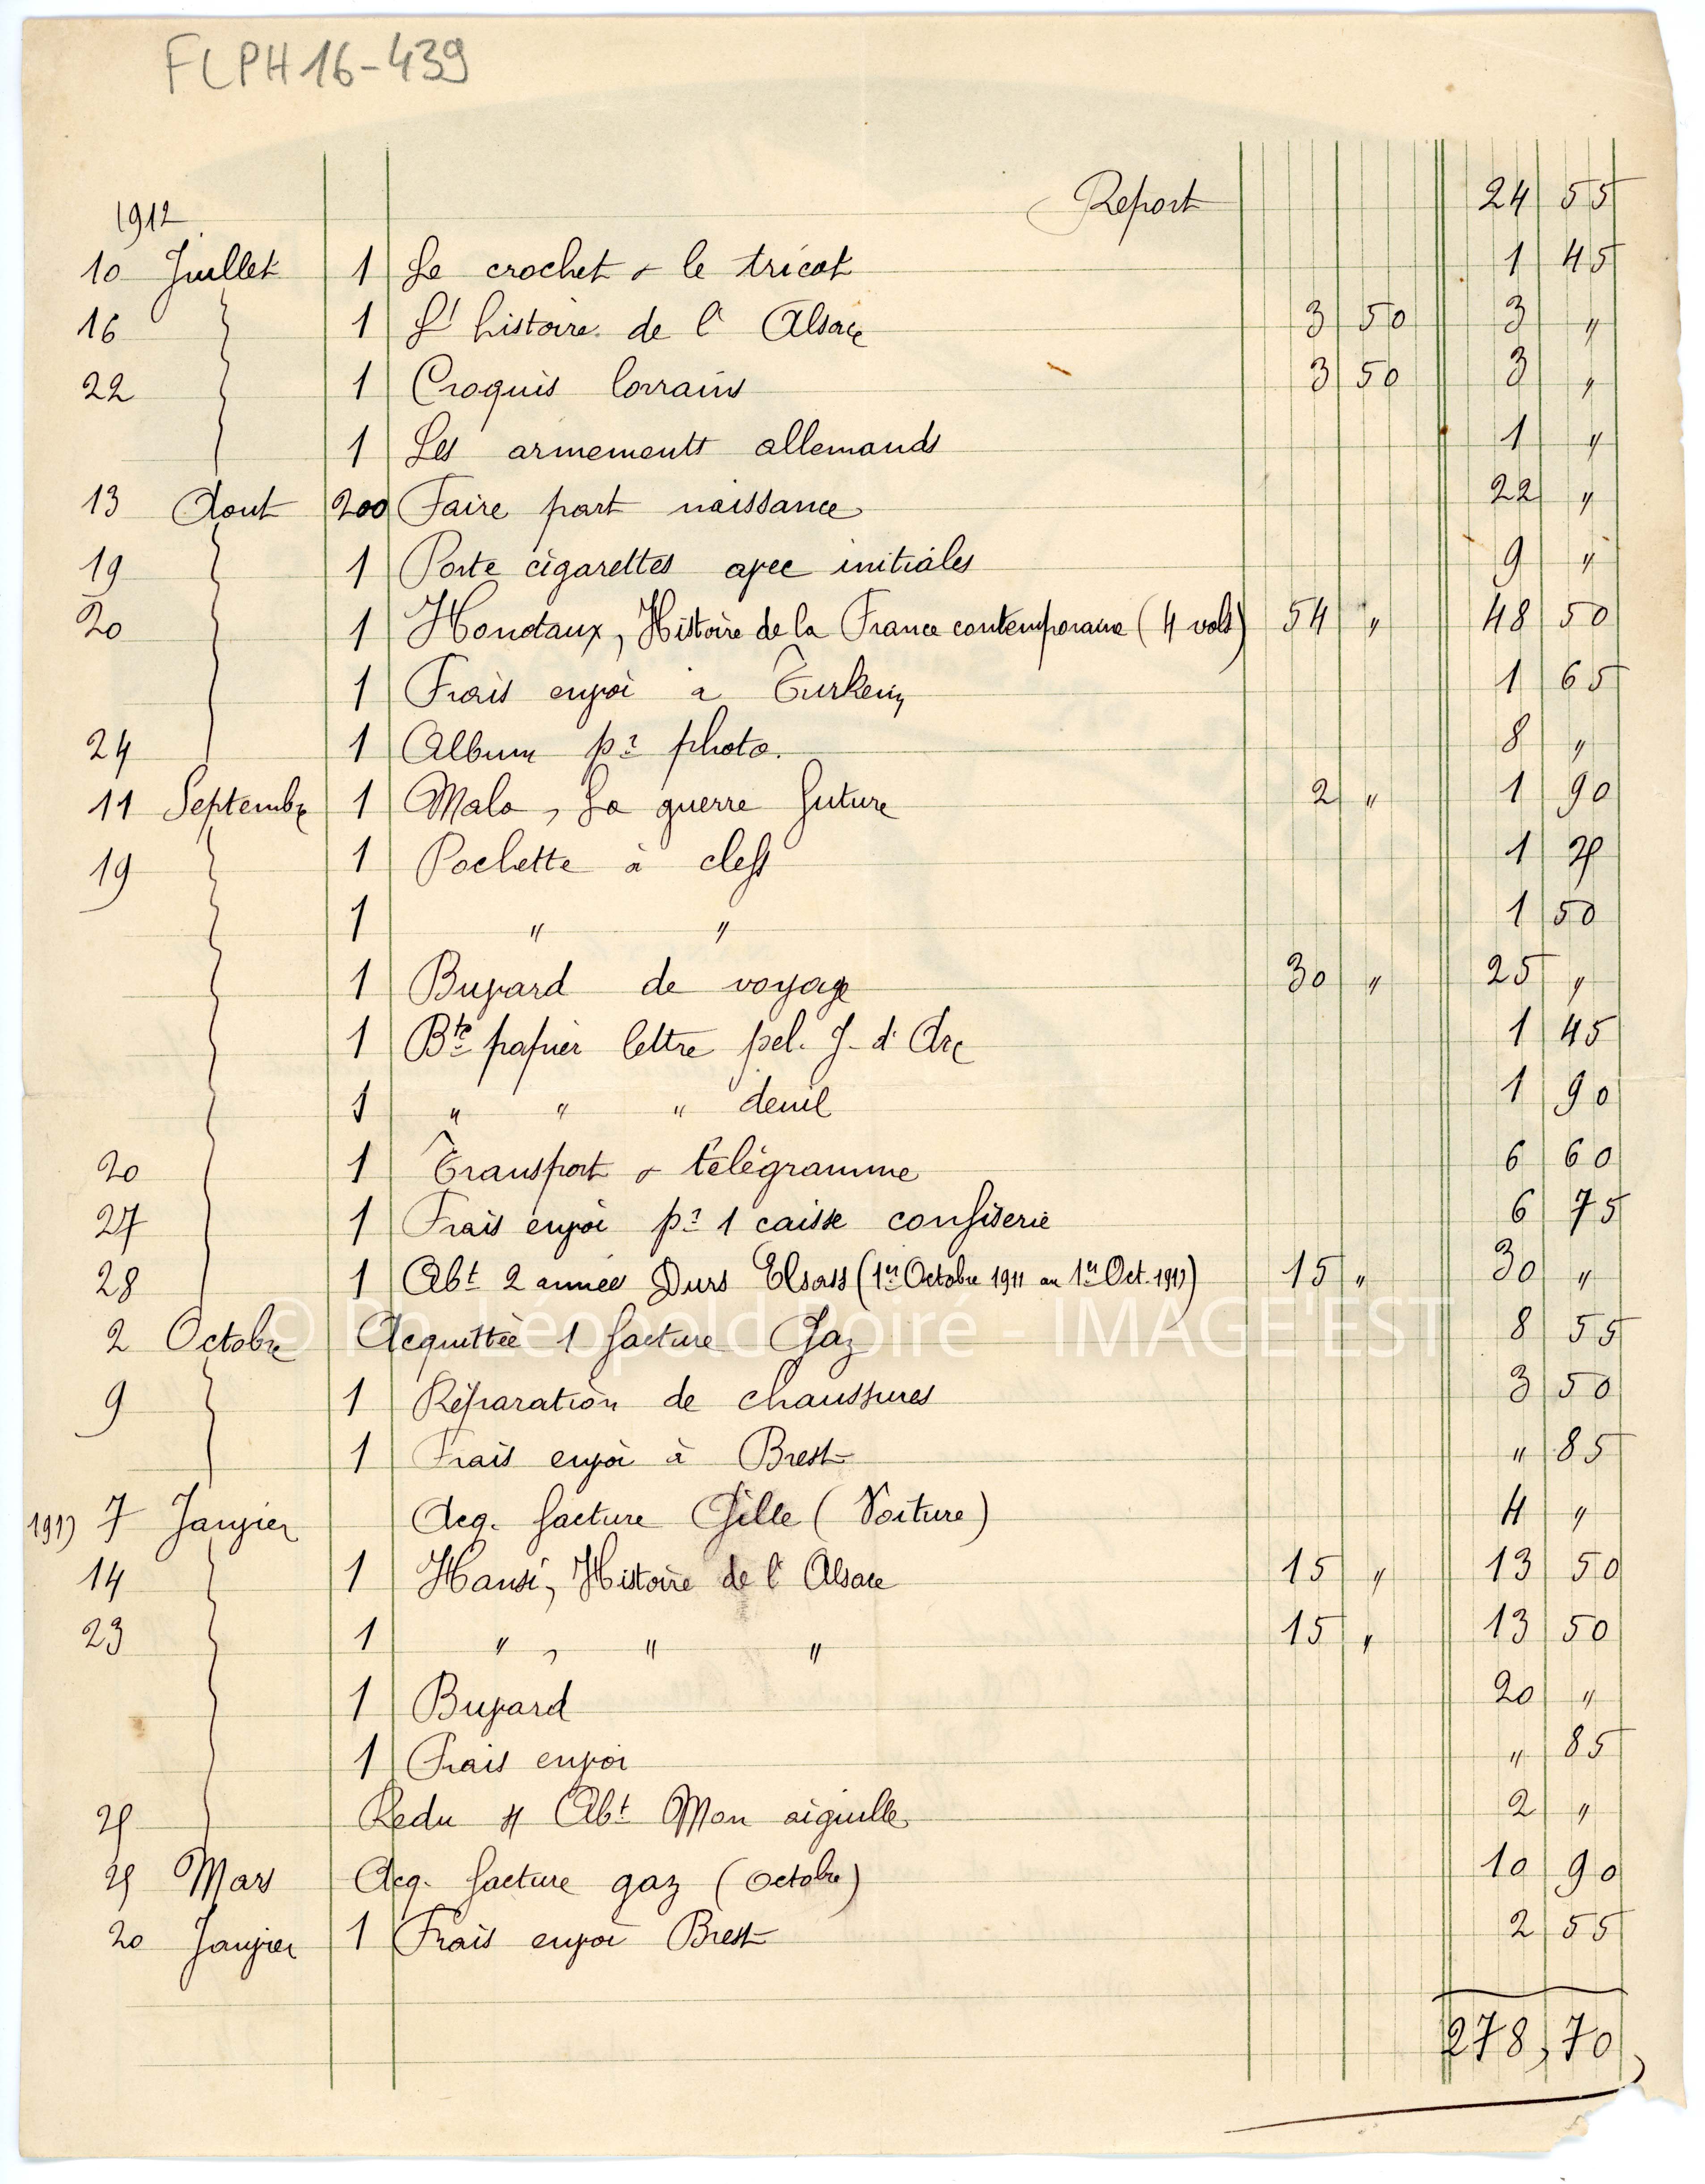 FLPH16-439
Report 24 55
1912
10 Juillet 1 Le crochet & le tricot 1 45
16 1 L'histoire de l'Alsace 3 50 3 "
22 1 Croquis lorrains 3 50 3 "
1 Les armements allemands 1 "
13 Aout 200 Faire part naissance 22 "
19 1 Porte cigarettes avec initiales 9 "
20 1 Honotaux, Histoire de la France contemporaine (4 vols) 54 " 48 50
1 Frais envoi a Turkein 1 65
24 1 Album pr photo. 8 "
11 Septembre 1 Malo, La guerre future 2 " 1 90
19 1 Pochette à clefs 1 25
1 " " 1 50
1 Buvard de voyage 30 " 25 "
1 Bte papier lettre vel. J. d'Arc 1 45
1 " " " deuil 1 90
20 1 Transport & télégramme 6 60
27 1 Frais envoi pr 1 caisse confiserie 6 75
28 1 Abt 2 années Durs Elsass (1er Octobre 1911 au 1er Oct. 1913) 15 " 30 "
© Fds Léopold Poiré - IMAGE'EST
2 Octobre Acquittée 1 facture Gaz 8 55
9 1 Réparation de chaussures 3 50
1 Frais envoi à Brest " 85
1913 7 Janvier Acq. facture Gille (Voiture) 4 "
14 1 Hansi, Histoire de l'Alsace 15 " 13 50
23 1 " , " " 15 " 13 50
1 Buvard 20 "
1 Frais envoi " 85
25 Redu s/ Abt Mon aiguille 2 "
25 Mars Acq. facture gaz (octobre) 10 90
20 Janvier 1 Frais envoi Brest 2 55
278,70